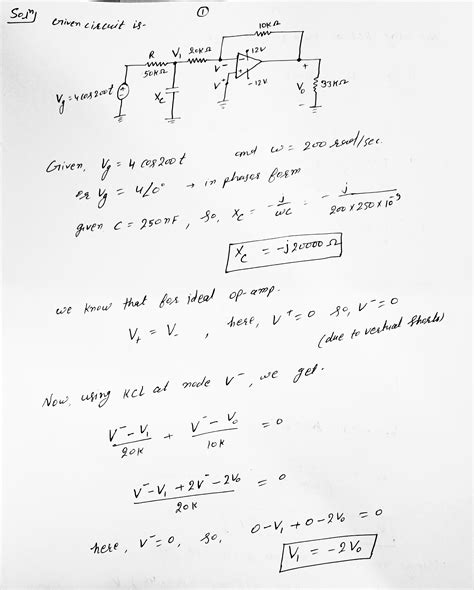 Sol^n)
①
Given circuit is-
10KΩ
R V₁ 20KΩ V⁻ 12V
50KΩ
Vg = 4 cos 200t Xc V⁺ -12V + V₀ - 33KΩ
Given, Vg = 4 cos 200t and ω = 200 rad/sec.
or Vg = 4∠0° → in phasor form
given C = 250nF, So, Xc = -j/ωC = -j/200 × 250 × 10⁻⁹
Xc = -j20000 Ω
we know that for ideal op-amp.
V₊ = V₋ , here, V⁺ = 0 so, V⁻ = 0
(due to vertual shorts)
Now, using KCL at node V⁻, we get.
V⁻ - V₁/20K + V⁻ - V₀/10K = 0
V⁻ - V₁ + 2V⁻ - 2V₀/20K = 0
here, V⁻ = 0, so, 0 - V₁ + 0 - 2V₀ = 0
V₁ = -2V₀